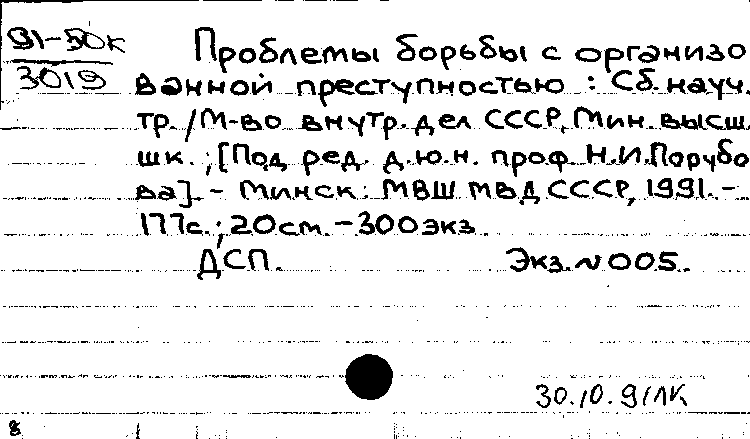 91-50к
3019
Проблемы борьбы с организо
ванной преступностью : Сб. науч.
тр. / М-во внутр. дел СССР, Мин. высш.
шк. ; [Под ред. д.ю.н. проф. Н.И.Порубо
ва]. - Минск: МВШ МВД СССР, 1991. -
177с. ; 20см. - 300экз.
ДСП. Экз. N 005.
30.10.91 ЛК
8